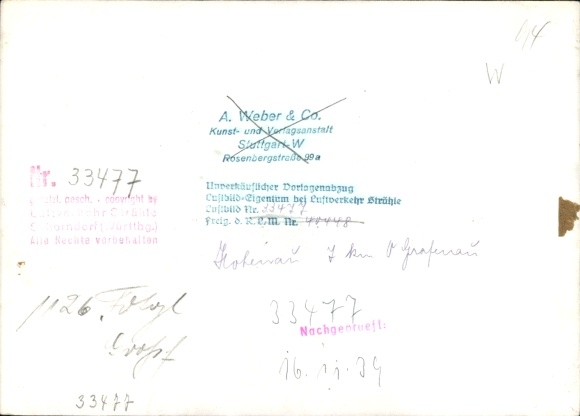 1/4
W
A. Weber & Co.
Kunst- und Verlagsanstalt
Stuttgart-W
Rosenbergstraße 99a
Nr. 33477
gesetzl. gesch. - copyright by
Luftverkehr Strähle
Schorndorf (Württbg.)
Alle Rechte vorbehalten
Unverkäuflicher Vorlagenabzug
Luftbild-Eigentum bei Luftverkehr Strähle
Luftbild Nr. 33477
Freig. d. R.L.M. Nr.
7 km O Grafenau
1126.
33477
Nachgeprüft:
16. 11. 39
33477